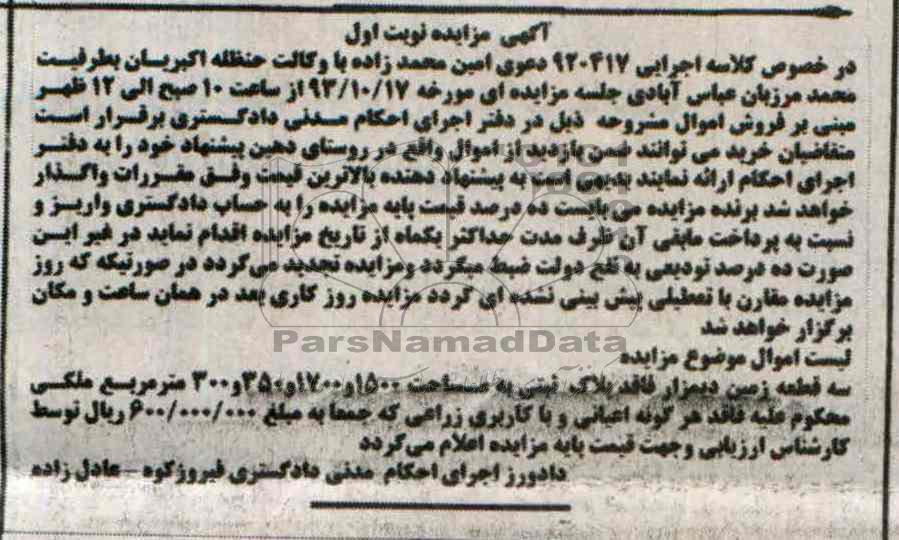 آگهی مزایده نوبت اول
در خصوص کلاسه اجرایی ۹۲۰۴۱۷ دعوی امین محمد زاده با وکالت حنظله اکبریان بطرفیت
محمد مرزبان عباس آبادی جلسه مزایده ای مورخه ۹۳/۱۰/۱۷ از ساعت ۱۰ صبح الی ۱۲ ظهر
مبنی بر فروش اموال مشروحه ذیل در دفتر اجرای احکام مدنی دادگستری برقرار است
متقاضیان خرید می توانند ضمن بازدید از اموال واقع در روستای دهین پیشنهاد خود را به دفتر
اجرای احکام ارائه نمایند بدیهی است به پیشنهاد دهنده بالاترین قیمت وفق مقررات واگذار
خواهد شد برنده مزایده می بایست ده درصد قیمت پایه مزایده را به حساب دادگستری واریز و
نسبت به پرداخت مابقی آن ظرف مدت حداکثر یکماه از تاریخ مزایده اقدام نماید در غیر این
صورت ده درصد تودیعی به نفع دولت ضبط میگردد ومزایده تجدید می گردد در صورتیکه که روز
مزایده مقارن با تعطیلی پیش بینی نشده ای گردد مزایده روز کاری بعد در همان ساعت و مکان
برگزار خواهد شد
ParsNamadData
لیست اموال موضوع مزایده
سه قطعه زمین دیمزار فاقد پلاک ثبتی به مساحت ۱۵۰۰و۱۷۰۰و۳۵۰و۳۰۰ مترمربع ملکی
محکوم علیه فاقد هر گونه اعیانی و با کاربری زراعی که جمعا به مبلغ ۶۰۰/۰۰۰/۰۰۰ ریال توسط
کارشناس ارزیابی وجهت قیمت پایه مزایده اعلام می گردد
دادورز اجرای احکام مدنی دادگستری فیروزکوه – عادل زاده